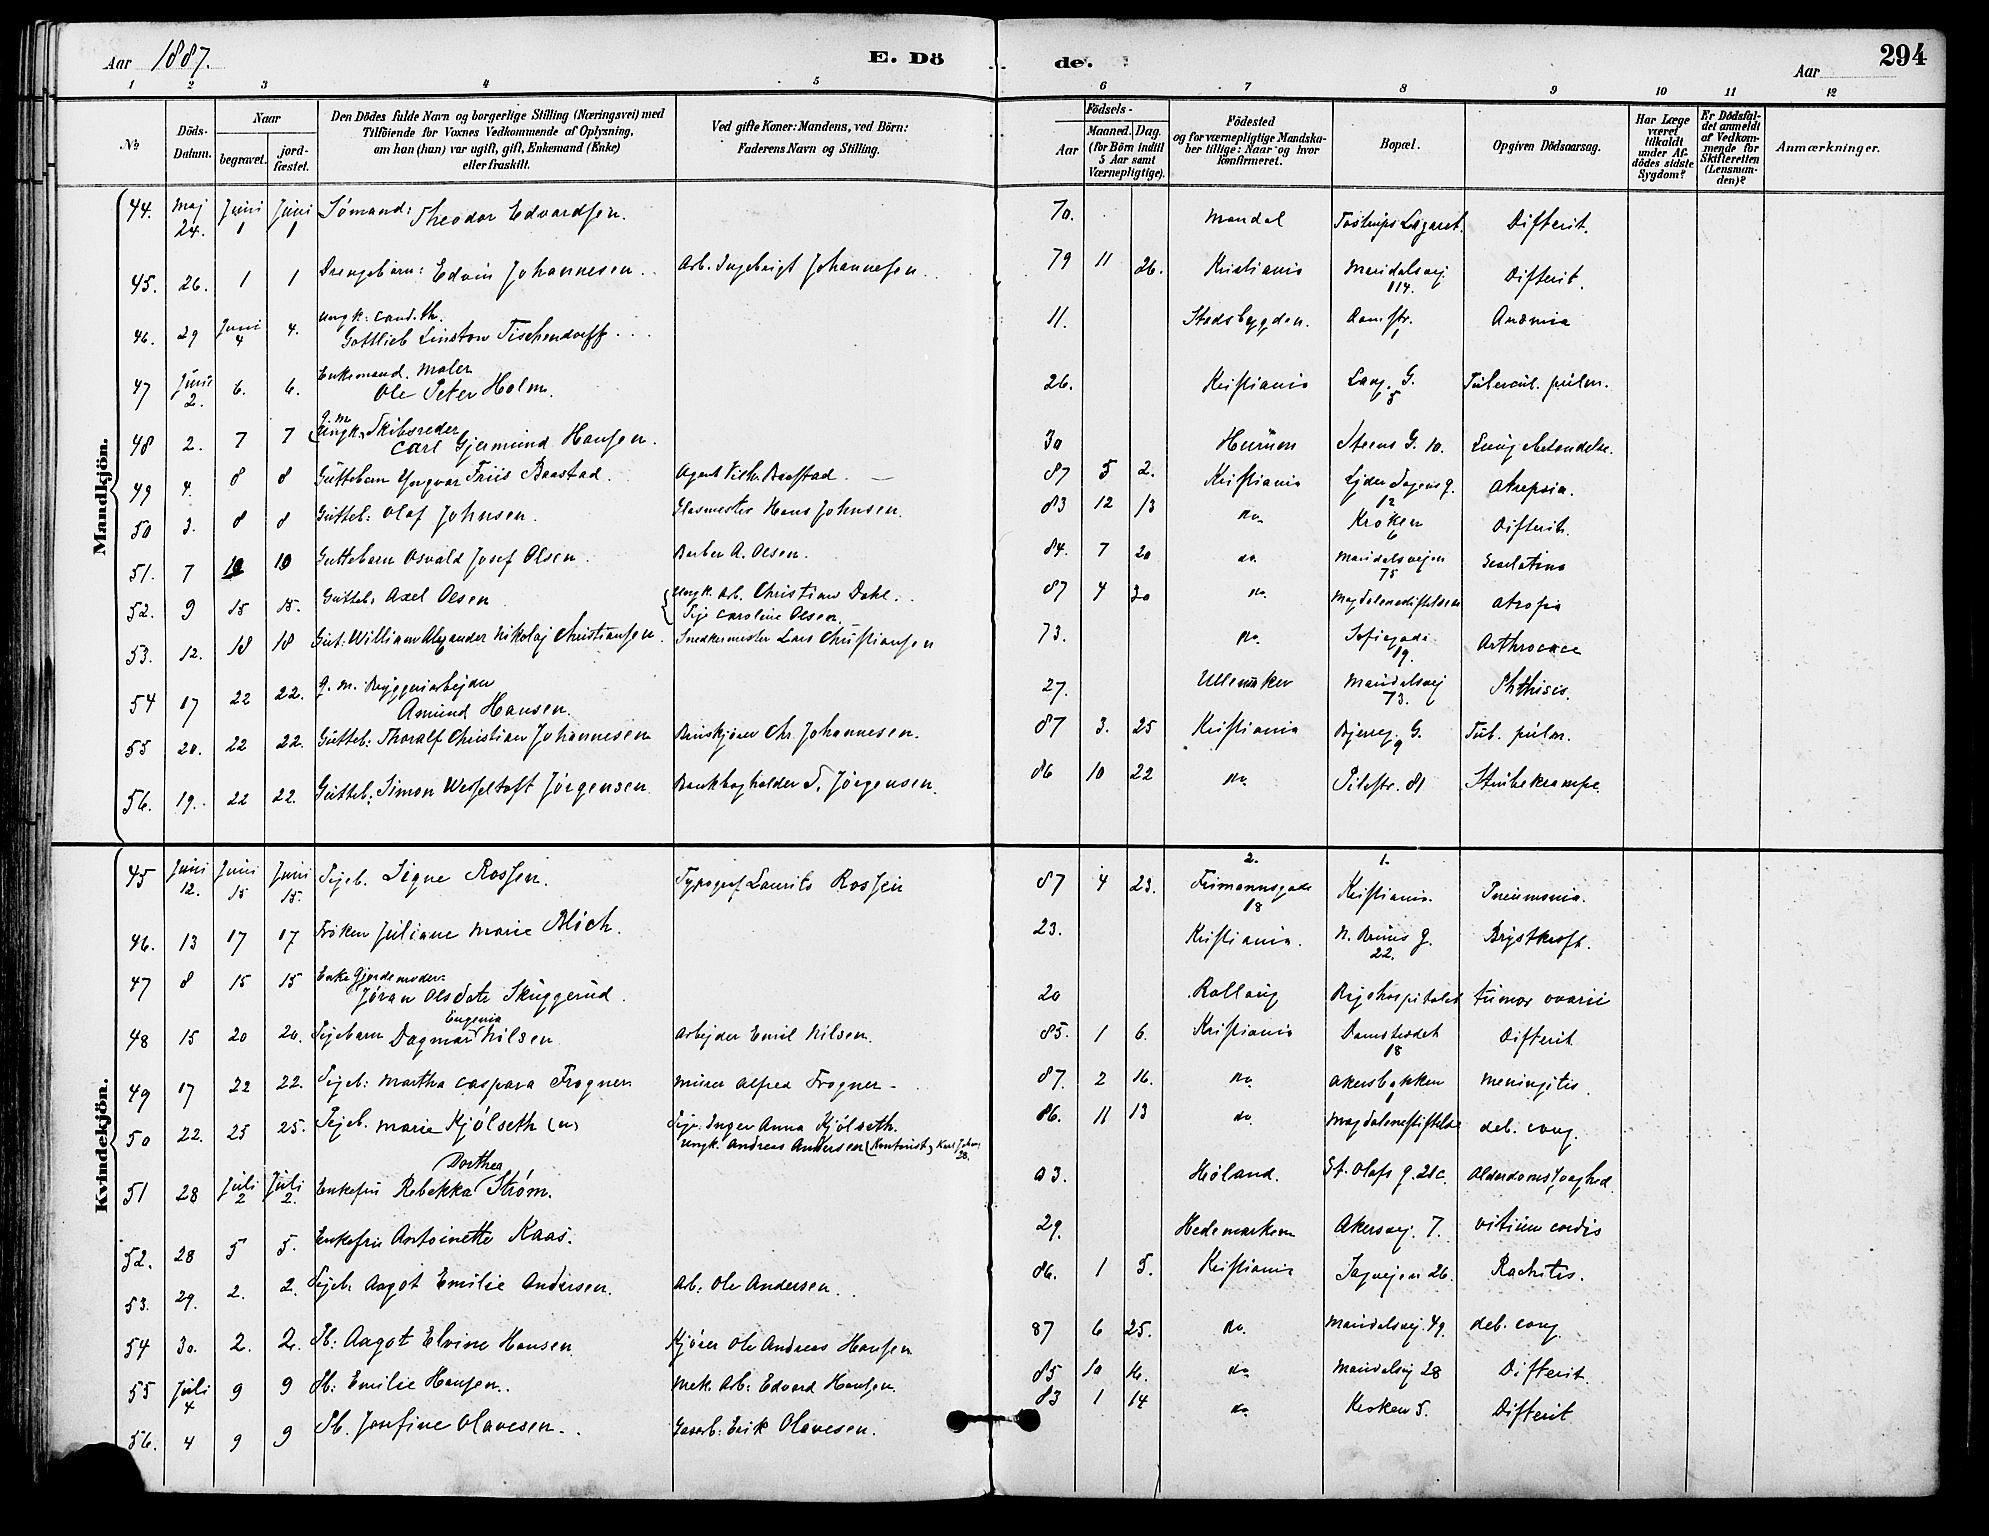 Aar 1887.
E. Dö de.
Aar
294
1 2 3 4 5 6 7 8 9 10 11 12
No
Döds-Datum.
Naar
begravet.
jord-fæstet.
Den Dödes fulde Navn og borgerlige Stilling (Næringsvei) med
Tilföiende for Voxnes Vedkommende af Oplysning,
om han (hun) var ugift, gift, Enkemand (Enke)
eller fraskilt.
Ved gifte Koner: Mandens, ved Börn:
Faderens Navn og Stilling.
Födsels-
Aar
Maaned. Dag.
(for Börn indtil
5 Aar samt
Værnepligtige).
Födested
og for værnepligtige Mandska-
ber tillige: Naar og hvor
konfirmeret.
Bopæl.
Opgiven Dödsaarsag.
Har Læge
været
tilkaldt
under Af-
dödes sidste
Sygdom?
Er Dödsfal-
det anmeldt
af Vedkom-
mende for
Skifteretten
(Lensman-
den)?
Anmærkninger.
Mandkjön.
44. Maj 24. Juni 1 Juni 1 Sømand: Theodor Edvardsen. 70. Mandal Tostrups Lazaret. Difterit.
45. 26. 1 1 Drengebarn: Edvin Johannesen. Arb. Ingebrigt Johannesen. 79 11 26. Kristiania Maridalsvej 114. Difterit.
46. 29 Juni 4 4. Ungk: cand. th. Gottlieb Linstow Tischendorff. 11. Stadsbygden. 1 Anæmia
47 Juni 2. 6. 6. Enkemand. Maler Ole Peter Holm. 26. Kristiania Lang. G. 5 Tubercul. pulm.
48 2. 7 7 g. m. Ungk. Skibsreder Carl Gjermund Hansen. 30 Hurum Steens G. 10. Lungebetændelse.
49 4. 8 8 Guttebarn Yngvar Friis Baastad. Agent Vilh. Baastad. 87 5 2. Kristiania 12 Atrepsia.
50 3. 8 8 Gutteb: Olaf Johnsen. Glasmester Hans Johnsen. 83 12 13 do. Kroken 6 Difterit.
51. 7 10 10 Guttebarn Osvald Josef Olsen. Barber A. Olsen. 84. 7 20 do. Maridalsvejen 75 Scarlatina
52. 9 15 15. Gutteb: Axel Olsen Ungk. Arb. Christian Dahl. Pig. Caroline Olsen. 87 4 30 do. Magdalenestiftelsen Atrofia
53. 12. 18 18 Gut: William Alexander Nikolaj Christiansen. Snedkermester Lars Christiansen 73. do. Sofiegade 19. Arthrocace
54 17 22 22. g. m. Bryggeriarbejder Amund Hansen. 27. Ullensaker Maridalsvej 73. Phthisis.
55 20. 22 22. Gutteb: Thoralf Christian Johannesen Chr. Johannesen. 87 3. 25 Kristiania Bjerreg. G. 9 Tub. pulm.
56. 19. 22 22. Gutteb: Simon Wesseltoft Jørgensen. Bankbogholder S. Jørgensen. 86 10 22 do. Pilestr. 81 Strubekrampe.
Kvindekjön.
45 Juni 12. Juni 15 Juni 15. Pigeb. Signe Rossen. Typograf Laurits Rossen 87 4 23. 2. Frimannsgade 18 1. Kristiania. Pneumonia.
46. 13 17 17 Frøken Juliane Marie Blich. 23. Kristiania. N. Bruns G. 22. Brystkræft.
47 8 15 15 Enke Gjordemoder. Jøran Olsdatr Skuggerud. 20 Rollaug Rigshospitalet tumor ovarii
48 15 20 20. Pigebarn Dagmar Eugenia Nilsen. Arbejder Emil Nilsen. 85. 1 6. Kristiania Damstredet 18 Difterit.
49 17 22 22. Pigeb: Martha Caspara Frogner. Murer Alfred Frogner 87. 2 16. do. Akersbakken 1 Meningitis.
50 22. 25 25. Pigeb. Marie Kjølseth (u) Pige. Inger Anna Kjølseth. Ungk. Andreas Andersen (Kontorist, Karl Johan 28. 86. 11 13 do. Magdalenestiftelse deb. cong.
51 28 Juli 2 Juli 2. Enkefru Rebekka Dorthea Strøm. 03. Høland. St. Olafs G. 21c. Alderdomssvaghed.
52. 28 5 5. Enkefru Antoinette Kaas. 29. Hedemarken Akersvej. 7. vitium cordis
53. 29. 2. 2. Pigeb. Aagot Emilie Andersen. Arb: Ole Andersen. 86. 1 5. Kristiania 26. Rachitis.
54 30. 2. 2. Pb: Aagot Elvine Hansen. Kjører Ole Andreas Hansen 87 6 25. do. Maridalsvej. 49. deb. cong.
55 Juli 4 9 9 Pb: Emilie Hansen. Mek. Arb: Edvard Hansen. 85 10 16. do. Maridalsvej 28 Difterit.
56. 4 9 9 Pb. Josefine Olavesen. Erik Olavesen. 83 1 14 do. Kroken 5. Difterit